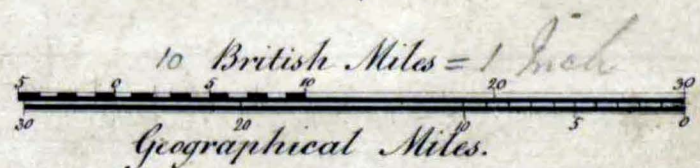 10 British Miles = 1 Inch
5 0 5 10 20 30
30 20 10 5 0
Geographical Miles.